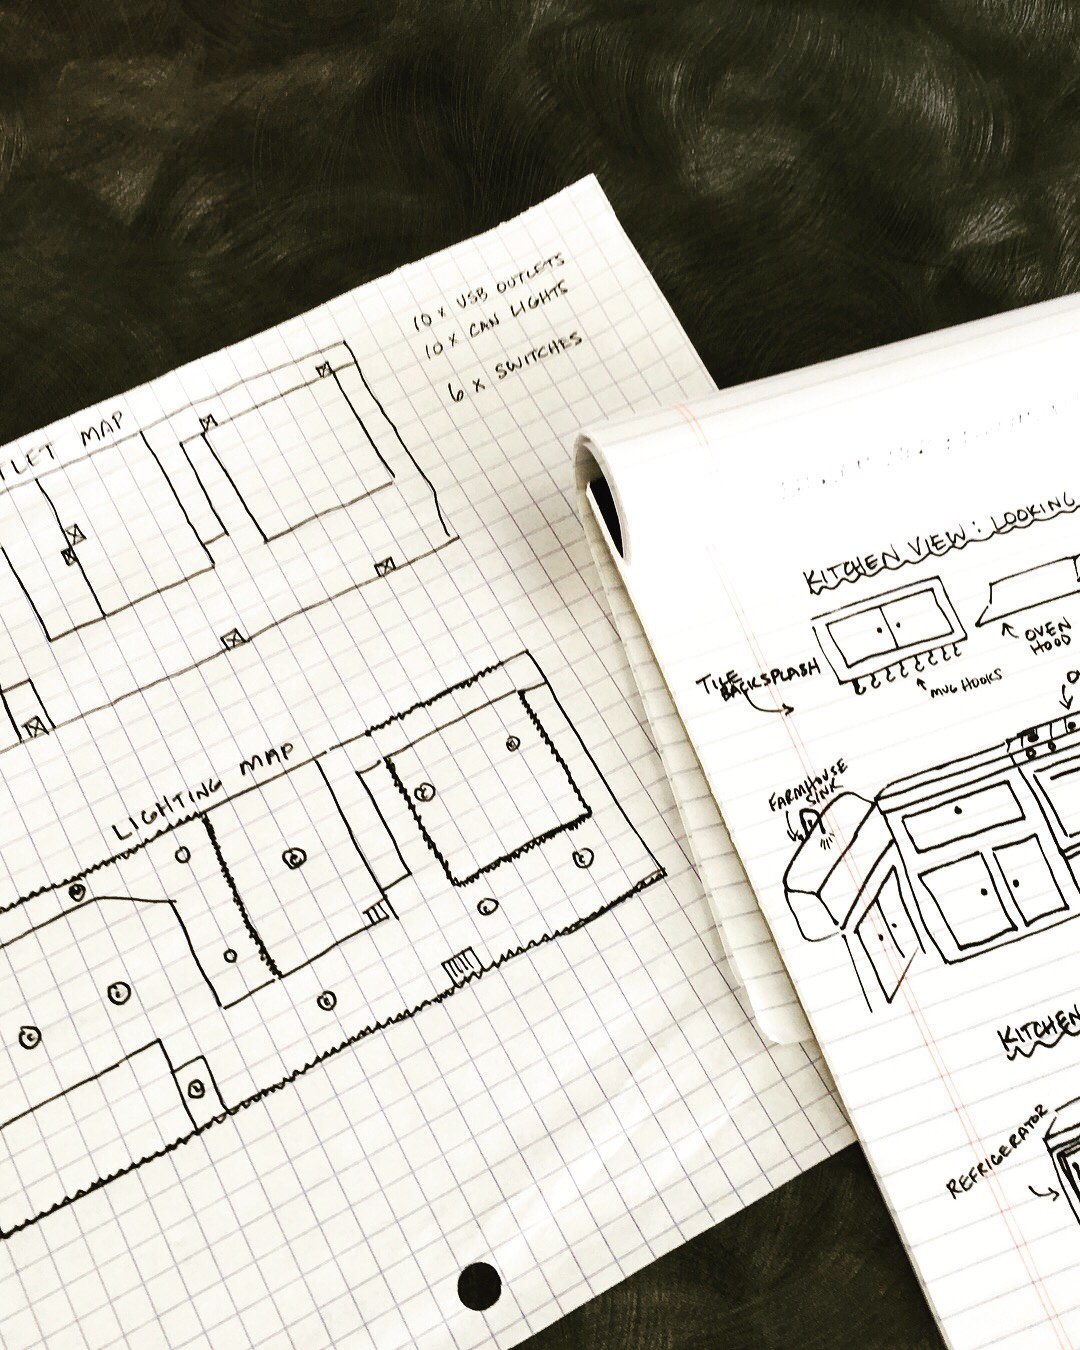 10 x USB OUTLETS
10 x CAN LIGHTS
6 x SWITCHES
TLET MAP
LIGHTING MAP
KITCHEN VIEW: LOOKING
OVEN
HOOD
MUG HOOKS
TILE
BACKSPLASH
FARMHOUSE
SINK
KITCHEN
REFRIGERATOR